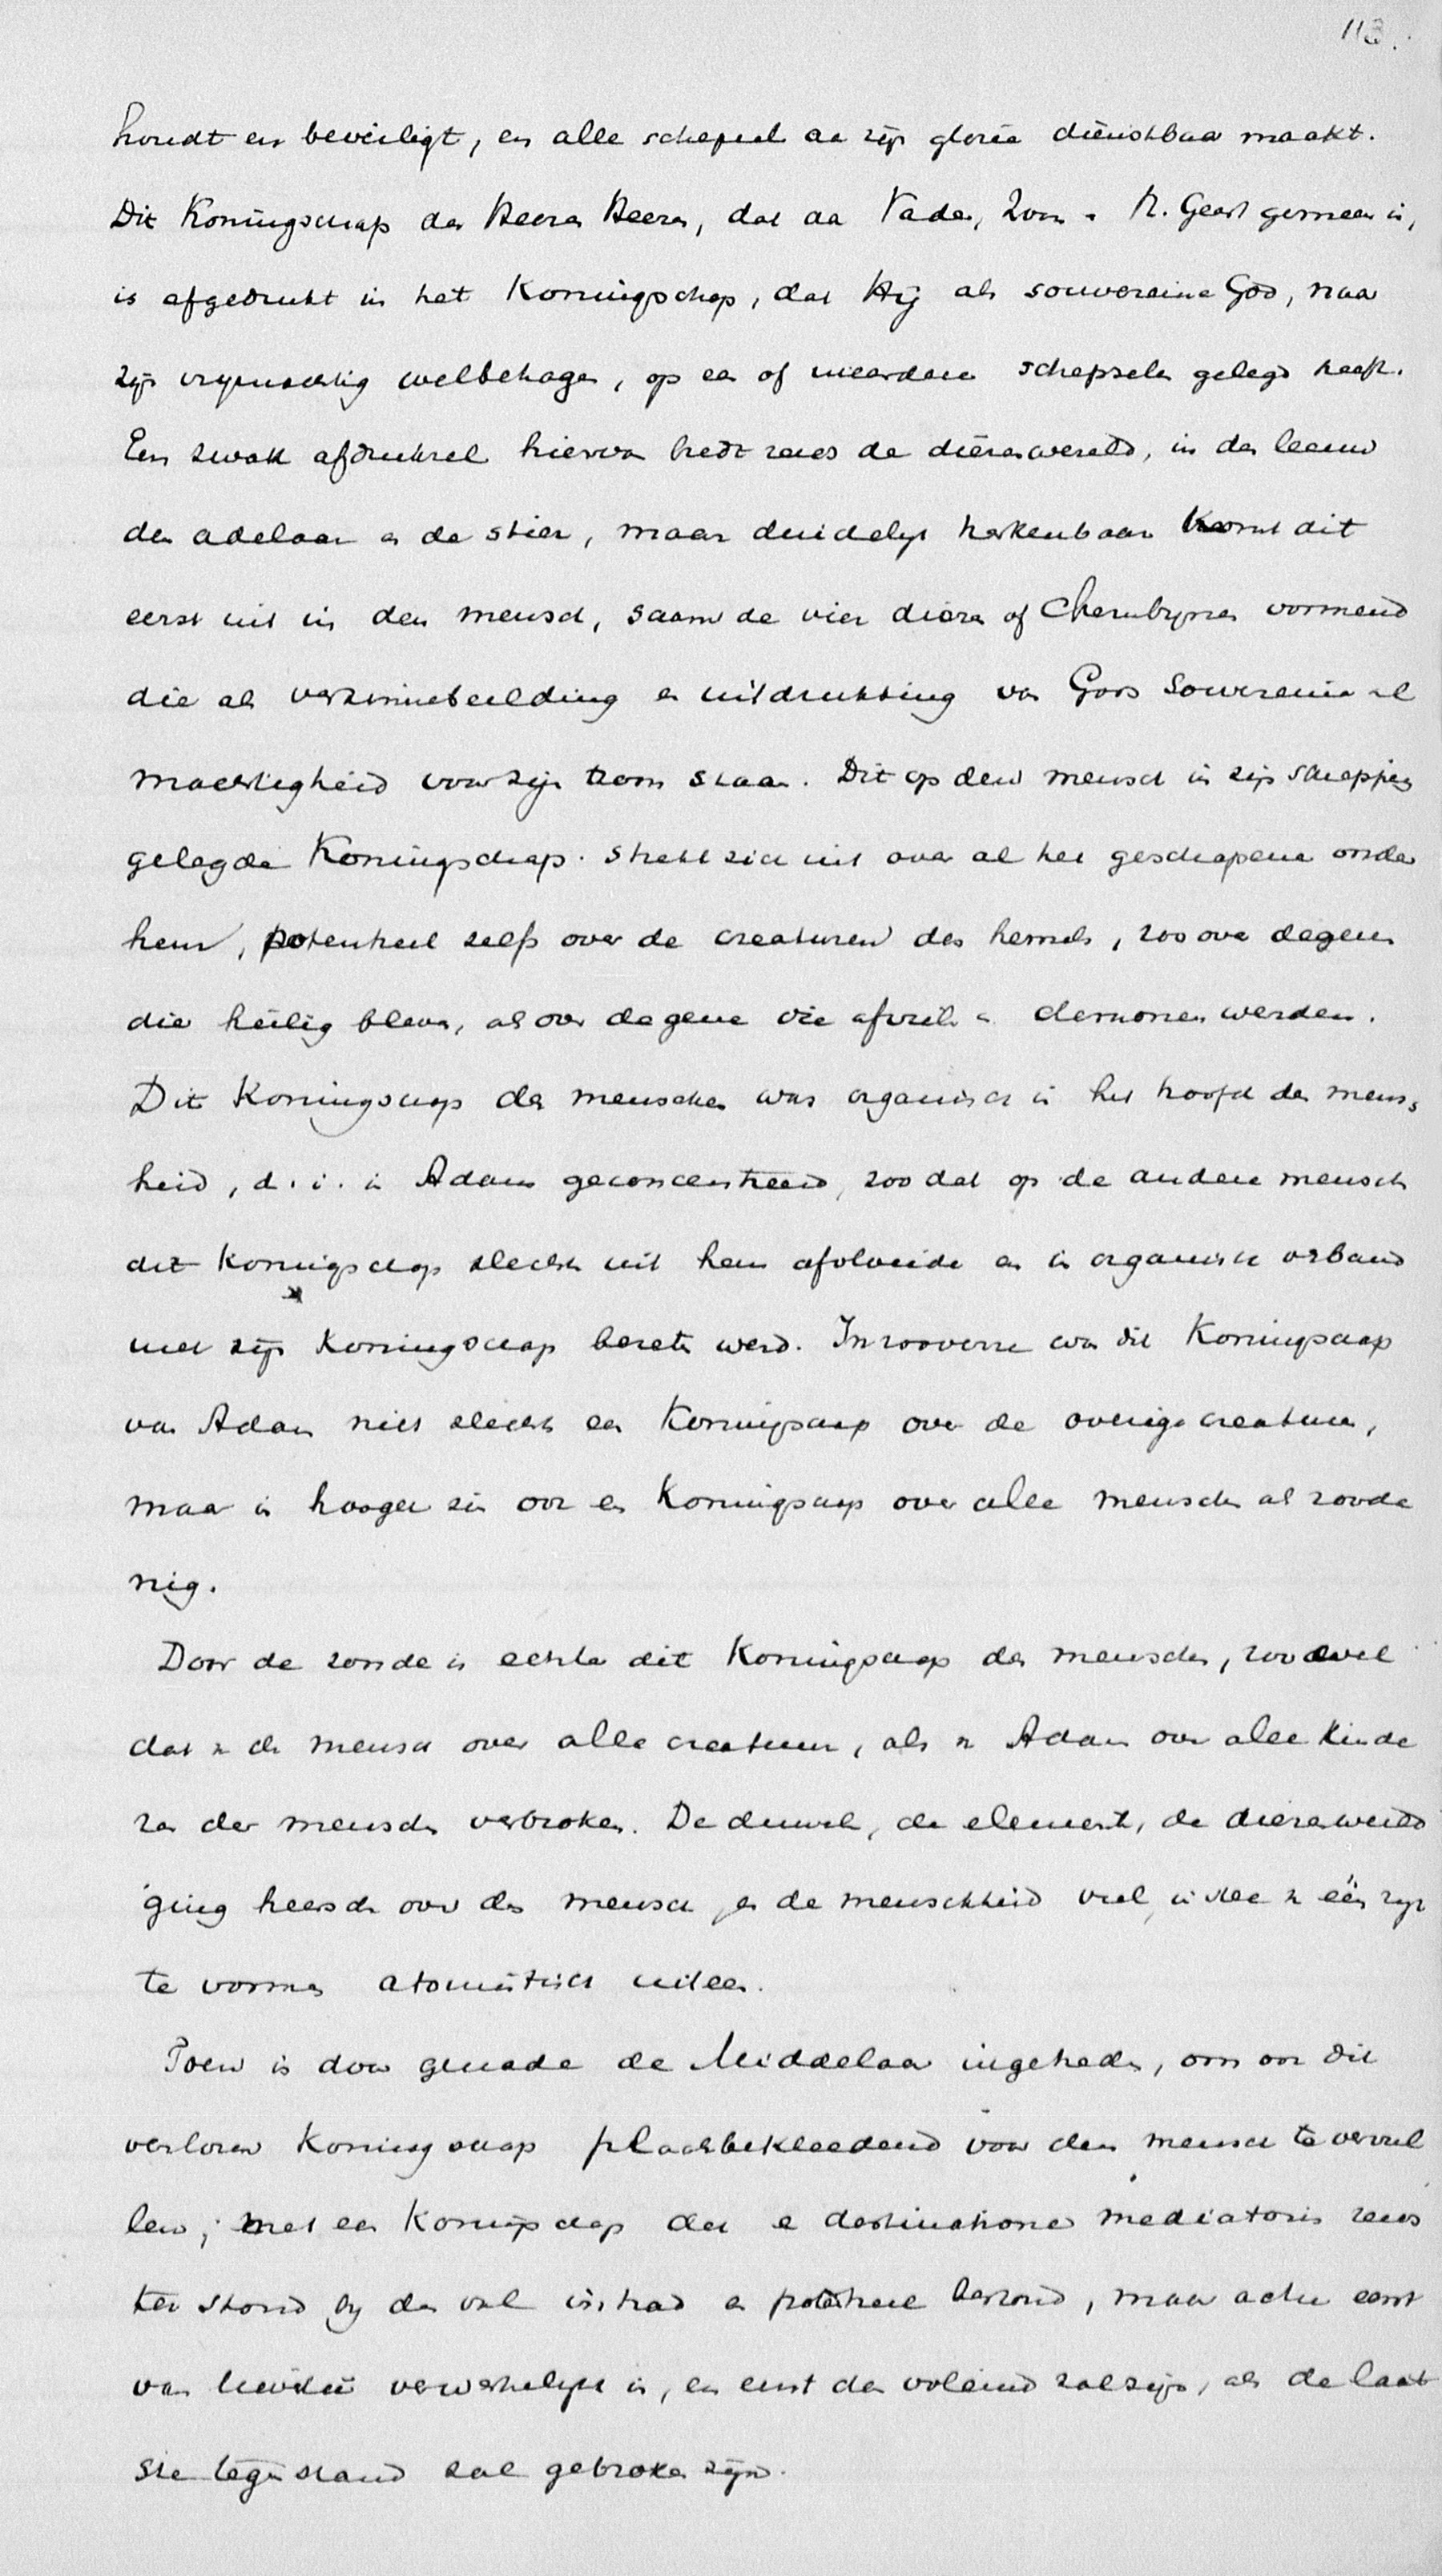 113.
houdt en beveiligt, en alle schepsel aa zijn glorie dienstbaar maakt.
Dit Koningschap des Heeren Heeren, dat aa Vader, Zoon & H. Geest gemeen is,
is afgedrukt in het Koningschap, dat Hij als souvereine God, naar
zijn vrijmachtig welbehagen, op een of meerdere schepselen gelegd heeft.
Een zwak afdruksel hiervan biedt reeds de dierenwereld, in den leeuw
den adelaar en de stier, maar duidelijk herkenbaar komt dit
eerst uit in den mensch, saam de vier dieren of Cherubijnen vormend
die als verzinnebeelding en uitdrukking van Gods Souvereine al
machtigheid voor zijn troon staan. Dit op den mensch in zijn schepping
gelegde Koningschap. strekt zich uit over al het geschapene onder
hem, potentieel zelfs over de creaturen des hemels, zoo over degenen
die heilig bleven, als over degene die afvielen en demonen werden.
Dit Koningschap des menschen was organisch in het hoofd der mens,
heid, d. i. in Adam geconcentreerd, zoo dat op de andere menschen
dit Koningschap slechts uit hem afvloeide en in organisch verband
met zijn Koningschap bezeten werd. In zooverre was dit Koningschap
van Adam niet slechts een Koningschap over de overige creaturen,
maar in hooger zin ook een Koningschap over alle menschen als zooda
nig.
Door de zonde is echter dit Koningschap des menschen, zoowel
dat in den mensch over alle creaturen, als in Adam over alle kinde
ren der menschen verbroken. De duivel, de elementen, de dierenwereld
ging heerschen over den mensch, en de menschheid viel, in stee van één rijk
te vormen atomistisch uiteen.
Toen is door genade de Middelaar ingetreden, om ook dit
verloren Koningschap plaatsbekleedend voor den mensch te vervul
len; met een Koningschap dat e destinatione mediatoris reeds
ter stond bij den val intrad en potentieel bestond, maar actu eerst
van lieverlee verwerkelijkt is, en eerst dan voleind zal zijn, als de laat
ste tegenstand zal gebroken zijn.